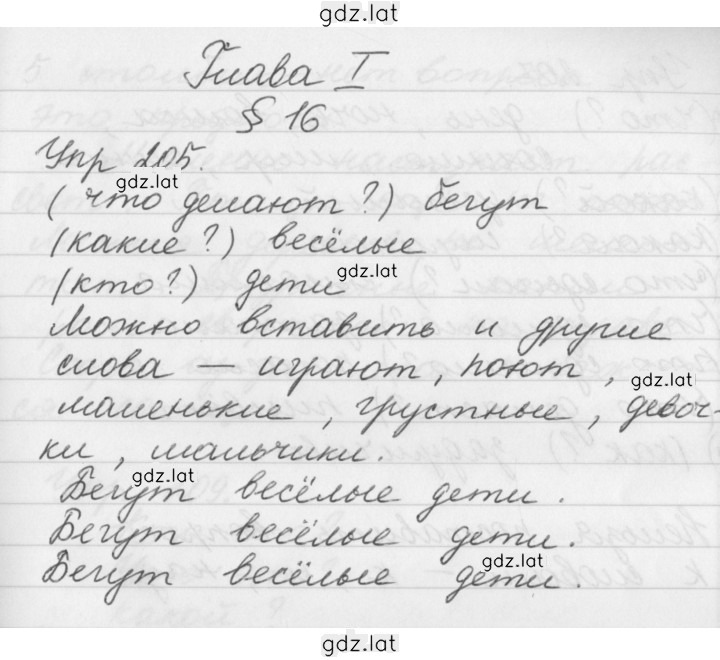 gdz.lat
Глава I
§ 16
Упр 205.
gdz.lat
(что делают?) бегут
(какие?) весёлые
gdz.lat
(кто?) дети
Можно вставить и другие
слова — играют, поют,
gdz.lat
маленькие, грустные, девоч-
ки, мальчики.
gdz.lat
Бегут весёлые дети.
Бегут весёлые дети.
gdz.lat
Бегут весёлые дети.
gdz.lat